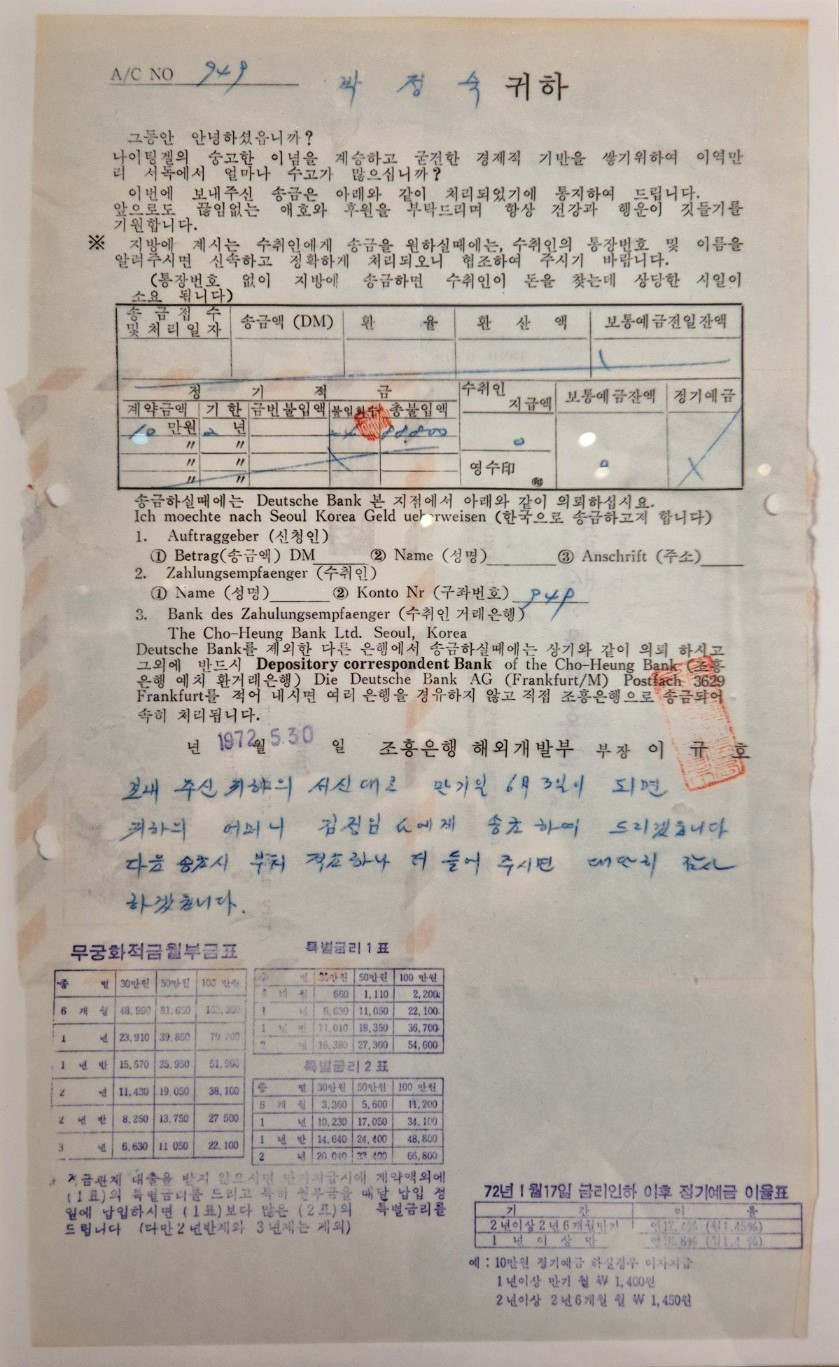 A/C NO 949 박 정 숙 귀하
그동안 안녕하셨읍니까?
나이팅겔의 숭고한 이념을 계승하고 굳건한 경제적 기반을 쌓기위하여 이역만
리 서독에서 얼마나 수고가 많으십니까?
이번에 보내주신 송금은 아래와 같이 처리되었기에 통지하여 드립니다.
앞으로도 끊임없는 애호와 후원을 부탁드리며 항상 건강과 행운이 깃들기를
기원합니다.
※ 지방에 계시는 수취인에게 송금을 원하실때에는, 수취인의 통장번호 및 이름을
알려주시면 신속하고 정확하게 처리되오니 협조하여 주시기 바랍니다.
(통장번호 없이 지방에 송금하면 수취인이 돈을 찾는데 상당한 시일이
소요 됩니다)
송금접수
및처리일자 송금액 (DM) 환 율 환 산 액 보통예금전일잔액
정 기 적 금 수취인
지급액 보통예금잔액 정기예금
계약금액 기한 금번불입액 불입회수 총불입액
10 만원 2 년 24 88,800 0
〃 〃
〃 〃 영수印 0
〃 〃
송금하실때에는 Deutsche Bank 본 지점에서 아래와 같이 의뢰하십시요.
Ich moechte nach Seoul Korea Geld ueberweisen (한국으로 송금하고저 합니다)
1. Auftraggeber (신청인)
① Betrag(송금액) DM ② Name (성명) ③ Anschrift (주소)
2. Zahlungsempfaenger (수취인)
① Name (성명) ② Konto Nr (구좌번호) 949
3. Bank des Zahulungsempfaenger (수취인 거래은행)
The Cho-Heung Bank Ltd. Seoul, Korea
Deutsche Bank를 제외한 다른 은행에서 송금하실때에는 상기와 같이 의뢰 하시고
그외에 반드시 Depository correspondent Bank of the Cho-Heung Bank (조흥
은행 예치 환거래은행) Die Deutsche Bank AG (Frankfurt/M) Postfach 3629
Frankfurt를 적어 내시면 여러 은행을 경유하지 않고 직접 조흥은행으로 송금되어
속히 처리됩니다.
년 1972 월 5.30 일 조흥은행 해외개발부 부장 이 규 호
보내 주신 귀하의 서신대로 만기일 6月 3일이 되면
귀하의 어머니 김점임 氏에게 송금 하여 드리겠습니다
다음 송금시 부쳐 적금하나 더 들어 주시면 대단히 감사
하겠습니다.
무궁화적금월부금표
종 별 30만원 50만원 100 만원
6 개 월
1 년 23,910 39,850
1 년 반 15,570 25,950
2 년 11,430 19,050 38,100
2 년 반 8,250 13,750 27 500
3 년 6,630 11 050 22,100
특별금리 1 표
종 별 30만원 50만원 100 만원
660 1,110 2,200
1 년 6,630 11,050 22,100
1 년 반 11,010 18,350 36,700
2 년 16,380 27,300 54,600
특별금리 2 표
종 별 30만원 50만원 100 만원
6 개 월 3,360 5,600 11,200
1 년 10,230 17,050 34,100
1 년 반 14,640 24,400 48,800
2 년 20,040 33,400 66,800
적금관계 대출을 받지 않으시면 만기지급시에 계약액외에
(1표)의 특별금리를 드리고 특히 월부금을 매달 납입 정
일에 납입하시면 (1표)보다 많은 (2표)의 특별금리를
드립니다 (다만 2년반제와 3년제는 제외)
72년 1월17일 금리인하 이후 정기예금 이율표
기 간 이 율
2년이상 2년 6개월만기 (월1.45%)
1 년 이 상
예 : 10만원 정기예금 하실경우 이자지급
1년이상 만기 월 ₩ 1,400원
2년이상 2년 6개월 월 ₩ 1,450원